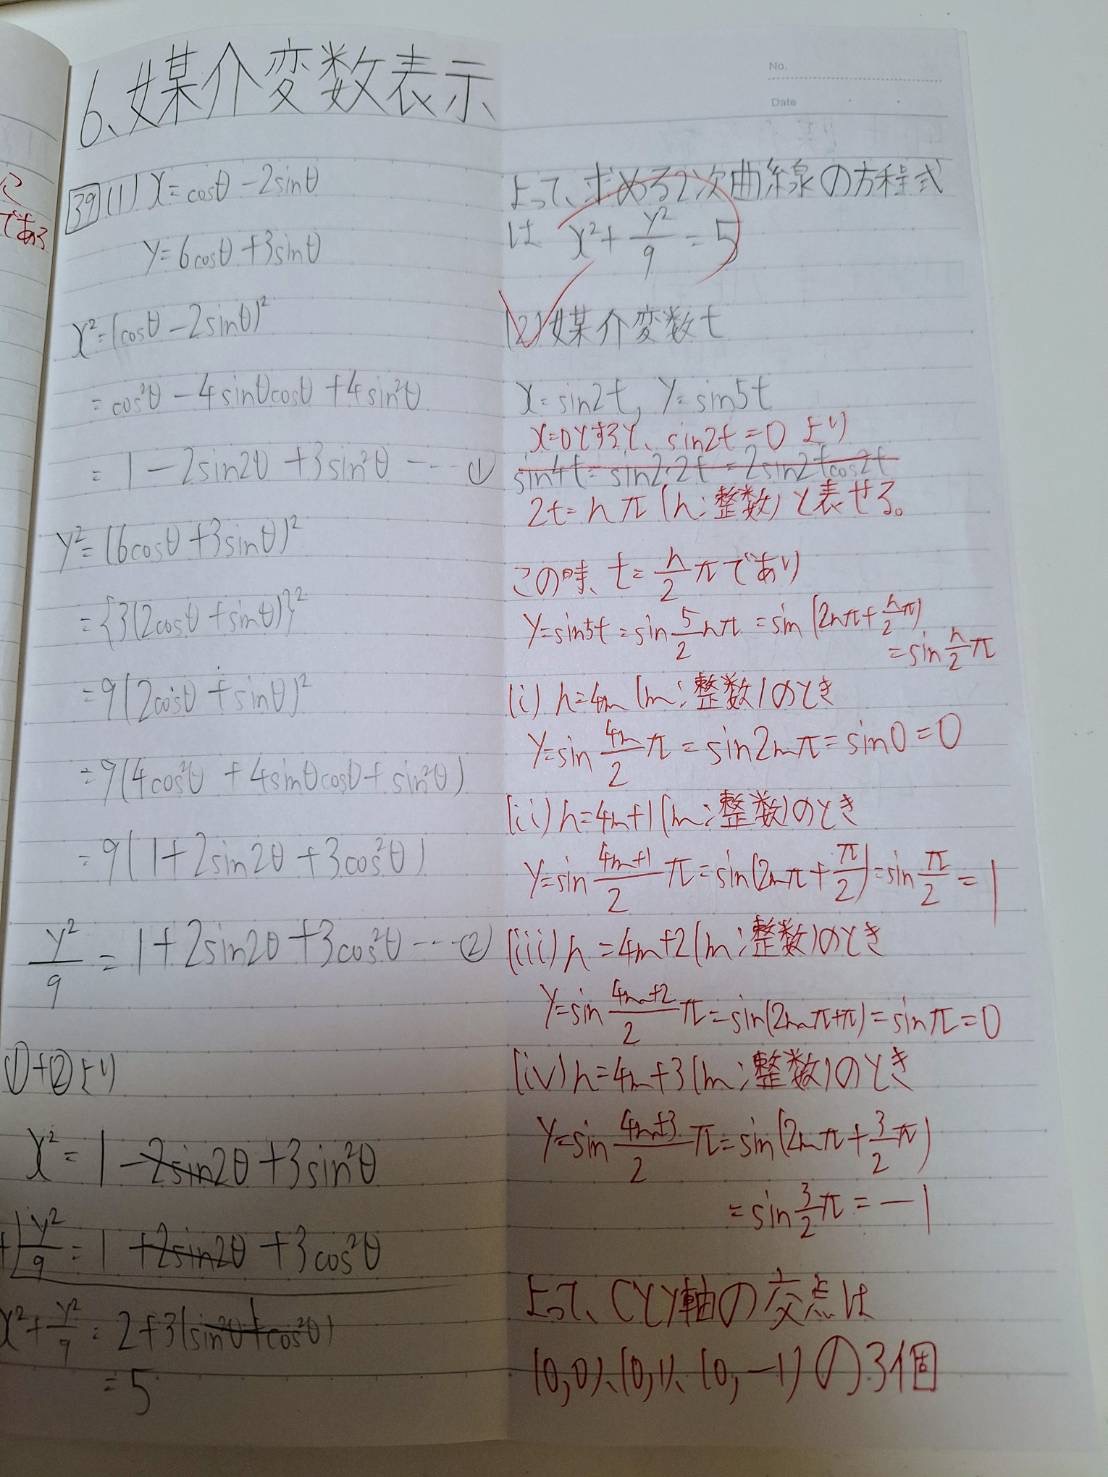 6、媒介変数表示
39 (1) x=cosθ-2sinθ
y=6cosθ+3sinθ
x²=(cosθ-2sinθ)²
=cos²θ-4sinθcosθ+4sin²θ
=1-2sin2θ+3sin²θ……①
y²=(6cosθ+3sinθ)²
={3(2cosθ+sinθ)}²
=9(2cosθ+sinθ)²
=9(4cos²θ+4sinθcosθ+sin²θ)
=9(1+2sin2θ+3cos²θ)
y²/9=1+2sin2θ+3cos²θ……②
①+②より
x²=1-2sin2θ+3sin²θ
+) y²/9=1+2sin2θ+3cos²θ
x²+y²/9=2+3(sin²θ+cos²θ)
=5
No.
Date
よって、求める2次曲線の方程式
は x²+y²/9=5
(2)媒介変数t
x=sin2t, y=sin5t
x=0とすると、sin2t=0より
sin4t=sin2・2t=2sin2tcos2t
2t=nπ(n:整数)と表せる。
この時、t=n/2πであり
y=sin5t=sin5/2nπ=sin(2nπ+n/2π)
=sinn/2π
(i)n=4m(m:整数)のとき
y=sin4m/2π=sin2mπ=sin0=0
(ii)n=4m+1(m:整数)のとき
y=sin4m+1/2π=sin(2mπ+π/2)=sinπ/2=1
(iii)n=4m+2(m:整数)のとき
y=sin4m+2/2π=sin(2mπ+π)=sinπ=0
(iv)n=4m+3(m:整数)のとき
y=sin4m+3/2π=sin(2mπ+3/2π)
=sin3/2π=-1
よって、Cとy軸の交点は
(0,0)、(0,1)、(0,-1)の3個